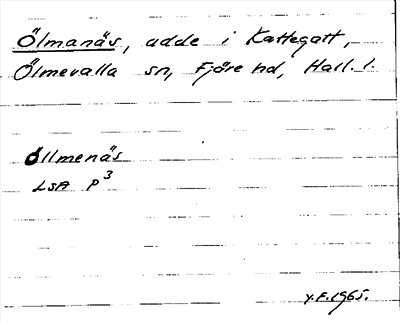 Ölmanäs, udde i Kattegatt,
Ölmevalla sn, Fjäre hd, Hall. l.
Ollmenäs
LSA P3
Y.F.1965.